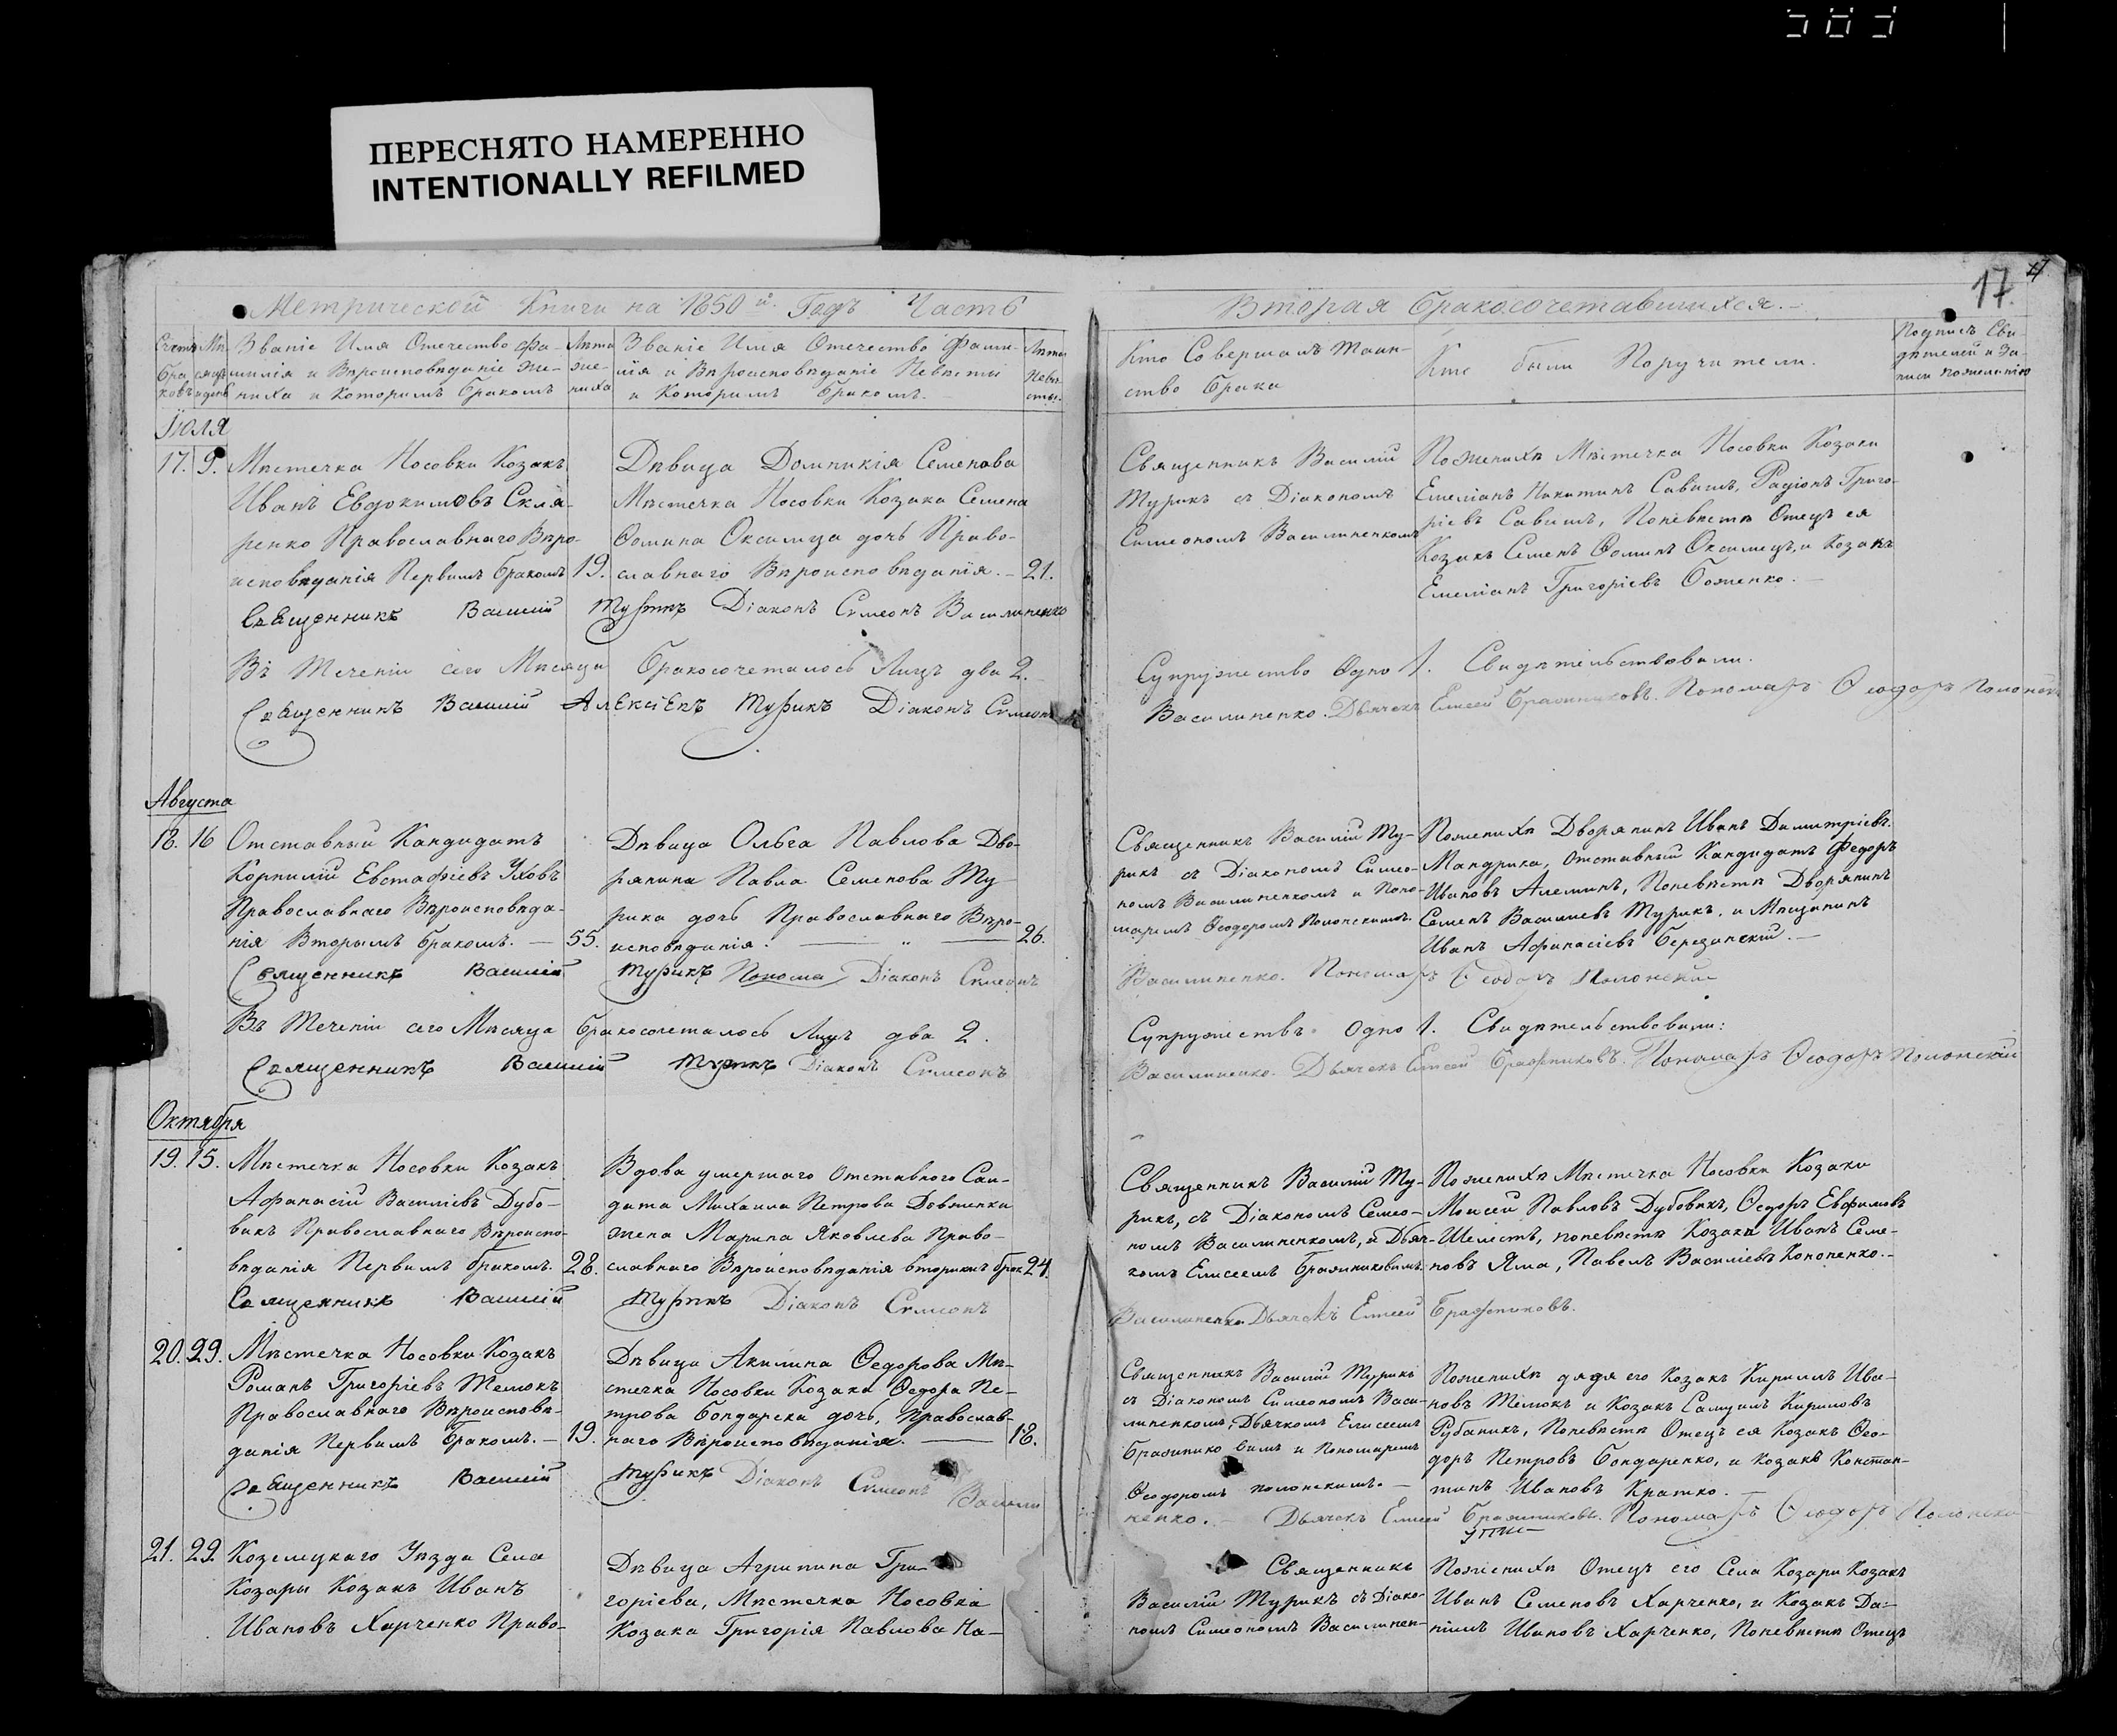 ПЕРЕСНЯТО НАМЕРЕННО
INTENTIONALLY REFILMED
17
Метрической Книги на 1850й Годъ Часть
Вторая бракосочетавшихся.
Счетъ браковъ
Мѣсяцъ и день
Званіе Имя Отечество Фа-
милія и Вѣроисповѣданіе же-
ниха и Которимъ бракомъ
Лѣта
же-
ниха
Званіе Имя Отечество Фами-
лія и Вѣроисповѣданіе Невѣсты
и Которимъ бракомъ.
Лѣта
Невѣ-
сты.
Кто Совершалъ Таин-
ство брака
Кто были Поручители.
Подпись Сви-
дѣтелей и За-
писи по желанію
Іюля
17. 9.
Мѣстечка Носовки Козакъ
Иванъ Евдокимовъ Скля-
ренко Православнаго Вѣро-
исповѣданія Первимъ бракомъ 19.
Дѣвица Домникія Семенова
Мѣстечка Носовки Козака Семена
Ѳомина Оксимца дочь Право-
славнаго Вѣроисповѣданія. – 21.
Священникъ Василій
Турикъ съ Діакономъ
Симеономъ Василиненкомъ
По женихѣ Мѣстечка Носовки Козаки
Емеліанъ Никитинъ Савишъ, Радіонъ Григо-
ріевъ Савишъ, По невѣстѣ Отецъ ея
Козакъ Семенъ Ѳоминъ Оксимецъ, и Козакъ
Емеліанъ Григоріевъ Боженко.
Священникъ Василій Турикъ Діаконъ Симеонъ Василиненко
Въ Теченіи сего Мѣсяца бракосочеталось Лицъ два 2.
Супружество Одно 1. Свидѣтельствовали.
Священникъ Василій Алексіевъ Турикъ Діаконъ Симеонъ
Василиненко. Дьячекъ Елисей Бражниковъ. Пономарь Ѳеодоръ Полонскій
Августа
18. 16
Отставный Кандидатъ
Корнилій Евстафіевъ Уховъ
Православнаго Вѣроисповѣда-
нія Вторымъ бракомъ. — 55.
Дѣвица Ольга Павлова Дво-
рянина Павла Семенова Ту-
рика дочь Православнаго Вѣро-
исповѣданія. — „ — 26.
Священникъ Василій Ту-
рикъ съ Діакономъ Симео-
номъ Василиненкомъ и Поно-
маремъ Ѳеодоромъ Полонскимъ.
По женихѣ Дворянинъ Иванъ Димитріевъ
Мандрика, Отставный Кандидатъ Федоръ
Ивановъ Алеминъ, По невѣстѣ Дворянинъ
Семенъ Василіевъ Турикъ, и Мѣщанинъ
Иванъ Афанасіевъ Березанскій. –
Священникъ Василій Турикъ Понома Діаконъ Симеонъ
Василиненко. Пономарь Ѳеодоръ Полонскій
Въ Теченіи сего Мѣсяца бракосочеталось Лицъ два 2.
Супружествъ Одно 1. Свидѣтельствовали:
Священникъ Василій Турикъ Діаконъ Симеонъ
Василиненко. Дьячекъ Елисей Бражниковъ. Пономарь Ѳеодоръ Полонскій
Октября
19. 15.
Мѣстечка Носовки Козакъ
Афанасій Василіевъ Дубо-
викъ Православнаго Вѣроиспо-
вѣданія Первимъ бракомъ. 28.
Вдова умершаго Отставного Сал-
дата Михаила Петрова Довженка
жена Марина Яковлева Право-
славнаго Вѣроисповѣданія вторимъ брак 24.
Священникъ Василій Ту-
рикъ, съ Діакономъ Симео-
номъ Василиненкомъ, и Дьяч-
комъ Елисеемъ Бражниковимъ.
По женихѣ Мѣстечка Носовки Козаки
Моисей Павловъ Дубовикъ, Ѳедоръ Евфимовъ
Шелестъ, по невѣстѣ Козаки Иванъ Семе-
новъ Яма, Павелъ Василіевъ Кононенко. –
Священникъ Василій Турикъ Діаконъ Симеонъ
Василиненко Дьячекъ Елисей Бражниковъ.
20. 29.
Мѣстечка Носовки Козакъ
Романъ Григоріевъ Телюкъ
Православнаго Вѣроисповѣ-
данія Первимъ бракомъ. – 19.
Дѣвица Акилина Ѳедорова Мѣ-
стечка Носовки Козака Ѳедора Пе-
трова Бондарека дочь, Православ-
наго Вѣроисповѣданія. — 18.
Священникъ Василій Турикъ
съ Діакономъ Симеономъ Васи-
линенкомъ, Дьячкомъ Елисеемъ
Бражниковимъ и Пономаремъ
Ѳеодоромъ Полонскимъ. –
По женихѣ дядя его Козакъ Кириллъ Ива-
новъ Телюкъ и Козакъ Самуилъ Кириловъ
Рубаникъ, По невѣстѣ Отецъ ея Козакъ Ѳео-
доръ Петровъ Бондаренко, и Козакъ Констан-
тинъ Ивановъ Кратко. –
Священникъ Василій Турикъ Діаконъ Симеонъ Васили
ненко. – Дьячекъ Елисей Бражниковъ. Пономарь Ѳеодоръ Полонскій
21. 29.
Козелецкаго Уѣзда Села
Козары Козакъ Иванъ
Ивановъ Харченко Право-
Дѣвица Агрипина Гри-
горіева, Мѣстечка Носовки
Козака Григорія Павлова На-
Священникъ
Василій Турикъ съ Діако-
номъ Симеономъ Василинен-
По женихѣ Отецъ его Села Козари Козакъ
Иванъ Семеновъ Харченко, и Козакъ Да-
ніилъ Ивановъ Харченко, По невѣстѣ Отецъ